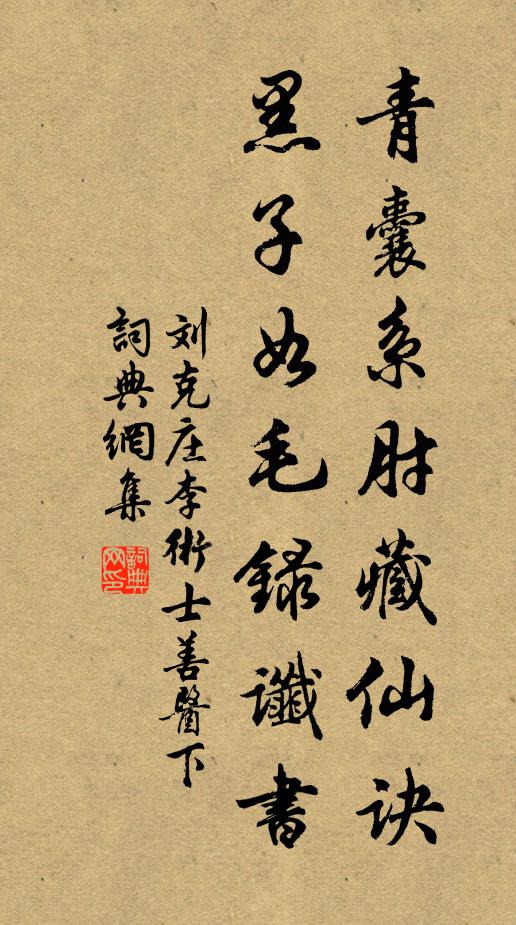 青囊系肘藏仙诀
黑子如毛録讖書
刘克庄李術士善醫下
詞典網集
詞典網印